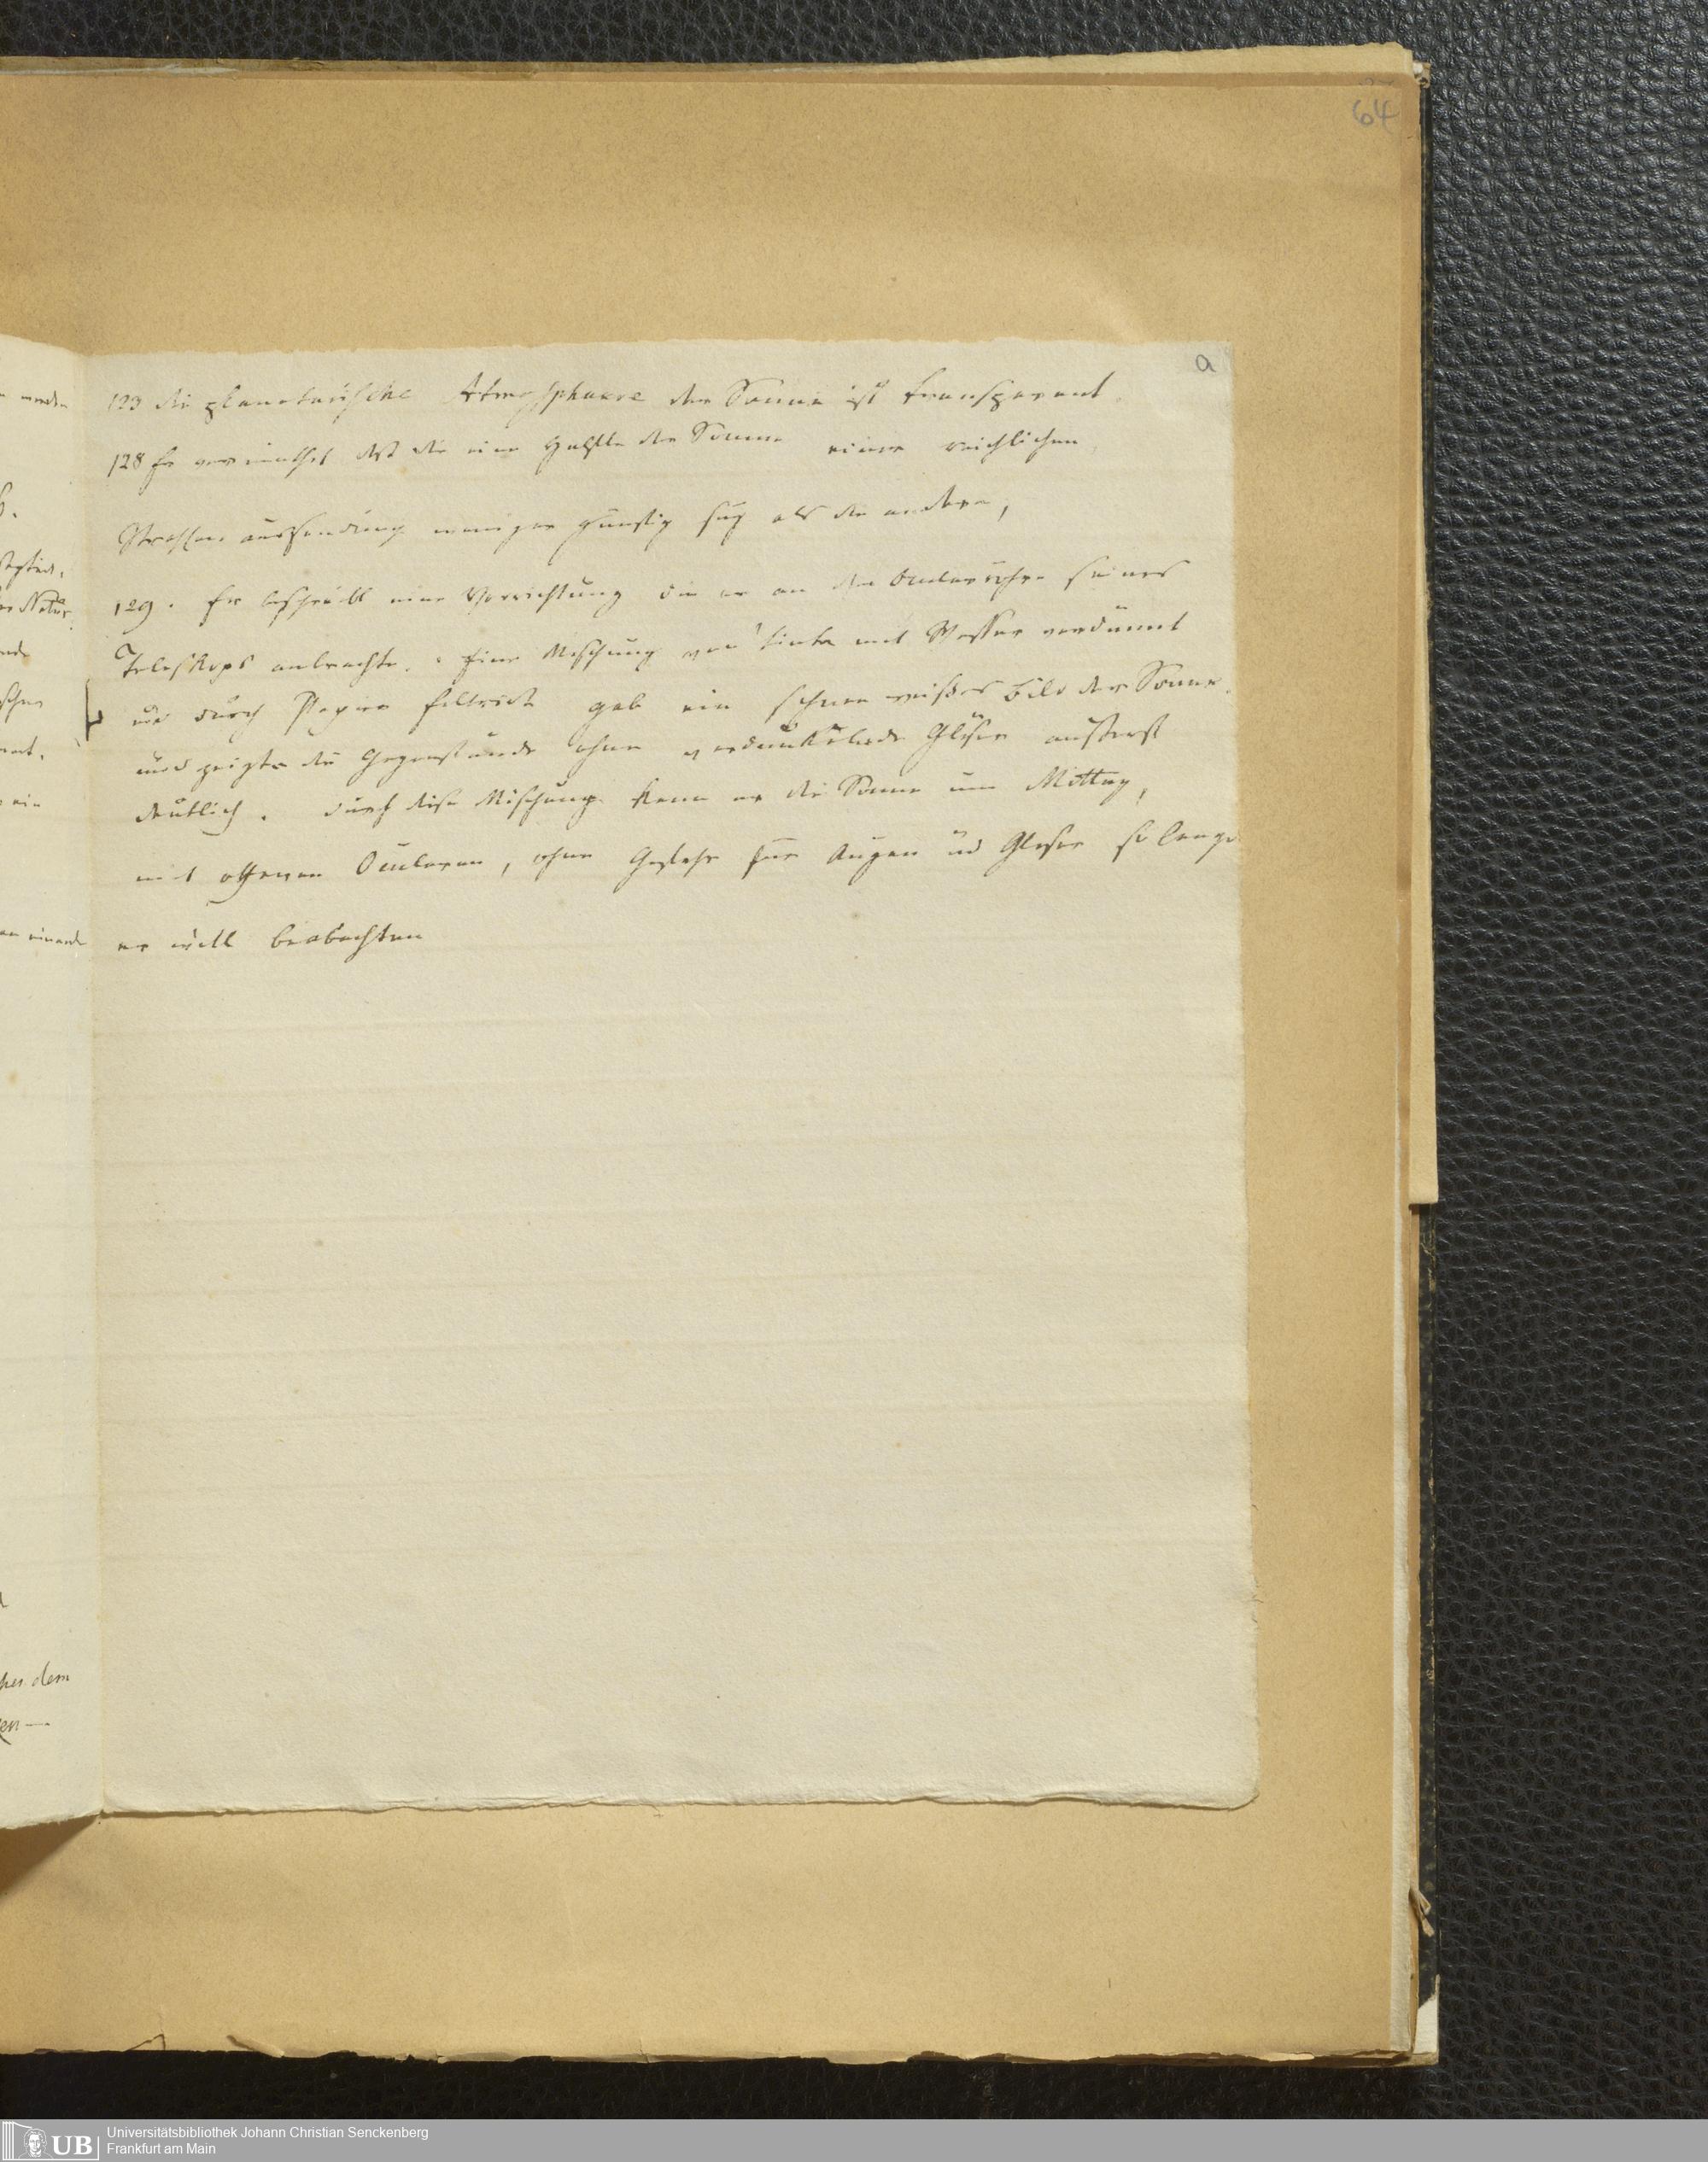 64
a
123 die planetarische Atmosphaere der Sonne ist transparent.
128 Er vermuthet daß die eine Hälfte der Sonne einer reichlichen
Strahlen aussendung weniger günstig sey als die andere,
129. Er beschreibt eine Vorrichtung die er an der Ocularröhre seines
Teleskops anbrachte. Eine Mischung von Tinte mit Wasser verdünnt
und durch Papier filtrirt gab ein schnee weißes Bild der Sonne.
und zeigte die Gegenstände ohne verdunkelnde Gläser äußerst
deutlich. durch diese Mischung kann er die Sonne um Mittag,
mit offenen Ocularen, ohne Gefahr für Augen und Gläser so lange
er will beobachten
her dem
UB
Universitätsbibliothek Johann Christian Senckenberg
Frankfurt am Main